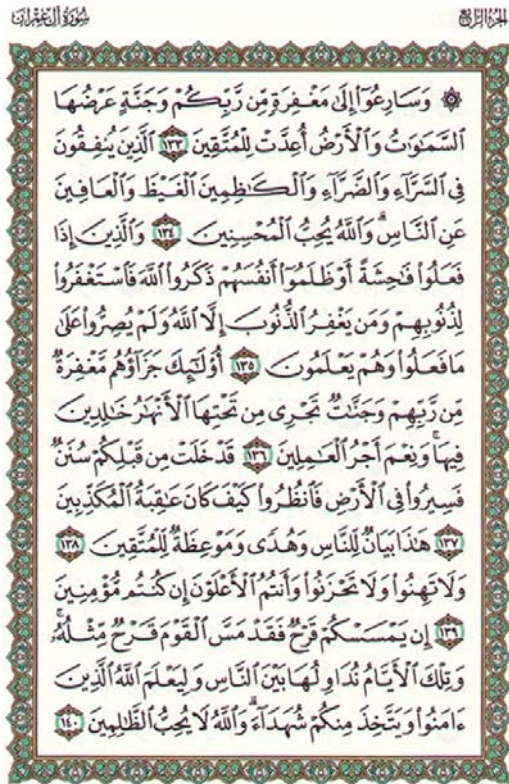 الجزء الرابع
سورة آل عمران
۞ وَسَارِعُوٓا۟ إِلَىٰ مَغْفِرَةٍ مِّن رَّبِّكُمْ وَجَنَّةٍ عَرْضُهَا
ٱلسَّمَـٰوَٰتُ وَٱلْأَرْضُ أُعِدَّتْ لِلْمُتَّقِينَ ١٣٣ ٱلَّذِينَ يُنفِقُونَ
فِى ٱلسَّرَّآءِ وَٱلضَّرَّآءِ وَٱلْكَـٰظِمِينَ ٱلْغَيْظَ وَٱلْعَافِينَ
عَنِ ٱلنَّاسِ ۗ وَٱللَّهُ يُحِبُّ ٱلْمُحْسِنِينَ ١٣٤ وَٱلَّذِينَ إِذَا
فَعَلُوا۟ فَـٰحِشَةً أَوْ ظَلَمُوٓا۟ أَنفُسَهُمْ ذَكَرُوا۟ ٱللَّهَ فَٱسْتَغْفَرُوا۟
لِذُنُوبِهِمْ وَمَن يَغْفِرُ ٱلذُّنُوبَ إِلَّا ٱللَّهُ وَلَمْ يُصِرُّوا۟ عَلَىٰ
مَا فَعَلُوا۟ وَهُمْ يَعْلَمُونَ ١٣٥ أُو۟لَـٰٓئِكَ جَزَآؤُهُم مَّغْفِرَةٌ
مِّن رَّبِّهِمْ وَجَنَّـٰتٌ تَجْرِى مِن تَحْتِهَا ٱلْأَنْهَـٰرُ خَـٰلِدِينَ
فِيهَا ۚ وَنِعْمَ أَجْرُ ٱلْعَـٰمِلِينَ ١٣٦ قَدْ خَلَتْ مِن قَبْلِكُمْ سُنَنٌ
فَسِيرُوا۟ فِى ٱلْأَرْضِ فَٱنظُرُوا۟ كَيْفَ كَانَ عَـٰقِبَةُ ٱلْمُكَذِّبِينَ
١٣٧ هَـٰذَا بَيَانٌ لِّلنَّاسِ وَهُدًى وَمَوْعِظَةٌ لِّلْمُتَّقِينَ ١٣٨
وَلَا تَهِنُوا۟ وَلَا تَحْزَنُوا۟ وَأَنتُمُ ٱلْأَعْلَوْنَ إِن كُنتُم مُّؤْمِنِينَ
١٣٩ إِن يَمْسَسْكُمْ قَرْحٌ فَقَدْ مَسَّ ٱلْقَوْمَ قَرْحٌ مِّثْلُهُۥ ۚ
وَتِلْكَ ٱلْأَيَّامُ نُدَاوِلُهَا بَيْنَ ٱلنَّاسِ وَلِيَعْلَمَ ٱللَّهُ ٱلَّذِينَ
ءَامَنُوا۟ وَيَتَّخِذَ مِنكُمْ شُهَدَآءَ ۗ وَٱللَّهُ لَا يُحِبُّ ٱلظَّـٰلِمِينَ ١٤٠